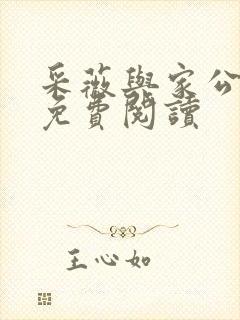 采薇與家公
免費閱讀
王心如